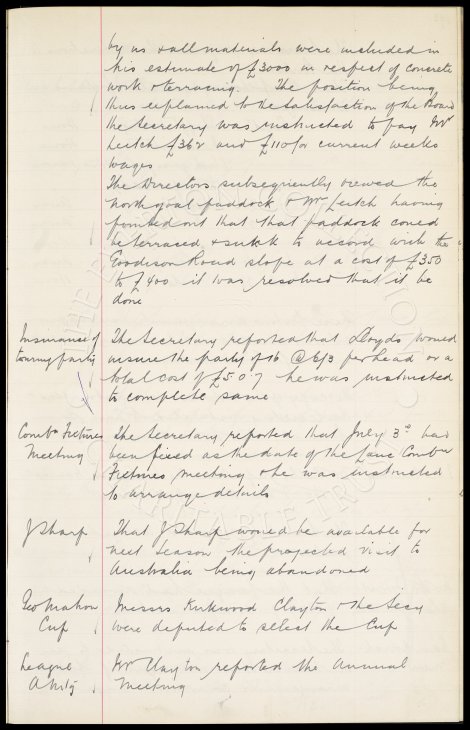 by us & all materials were included in
his estimate of £3000 in respect of concrete
work & terracing. The position being
thus explained to the satisfaction of the Board
the Secretary was instructed to pay Mr
Leitch £362 and £110 for current weeks
wages
The Directors subsequently viewed the
north goal paddock & Mr Leitch having
pointed out that that paddock could
be terraced & sunk to accord with the
Goodison Road slope at a cost of £350
to £400 it was resolved that it be
done
Insurance of
touring party
The Secretary reported that Lloyds would
insure the party of 16 @ 6/3 per head or a
total cost of £5.0.7 he was instructed
to complete same
Combn Fixtures
Meeting
The Secretary reported that July 3rd had
been fixed as the date of the Lanc Combn
Fixtures meeting & he was instructed
to arrange details
J Sharp
That J Sharp would be available for
next season the projected visit to
Australia being abandoned
Geo Mahon
Cup
Messrs Kirkwood Clayton & the Secy
were deputed to select the Cup
League
Mr Clayton reported the Annual
Meeting